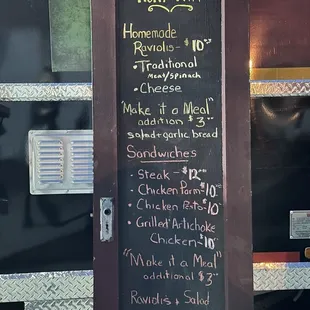 Homemade
Raviolis - $10
• Traditional
Meat/Spinach
• Cheese
"Make it a Meal"
addition $3
salad + garlic bread
Sandwiches
• Steak - $12
• Chicken Parm $10
• Chicken Pesto $10
• Grilled Artichoke
Chicken - $10
"Make it a Meal"
additional $3
Raviolis + Salad